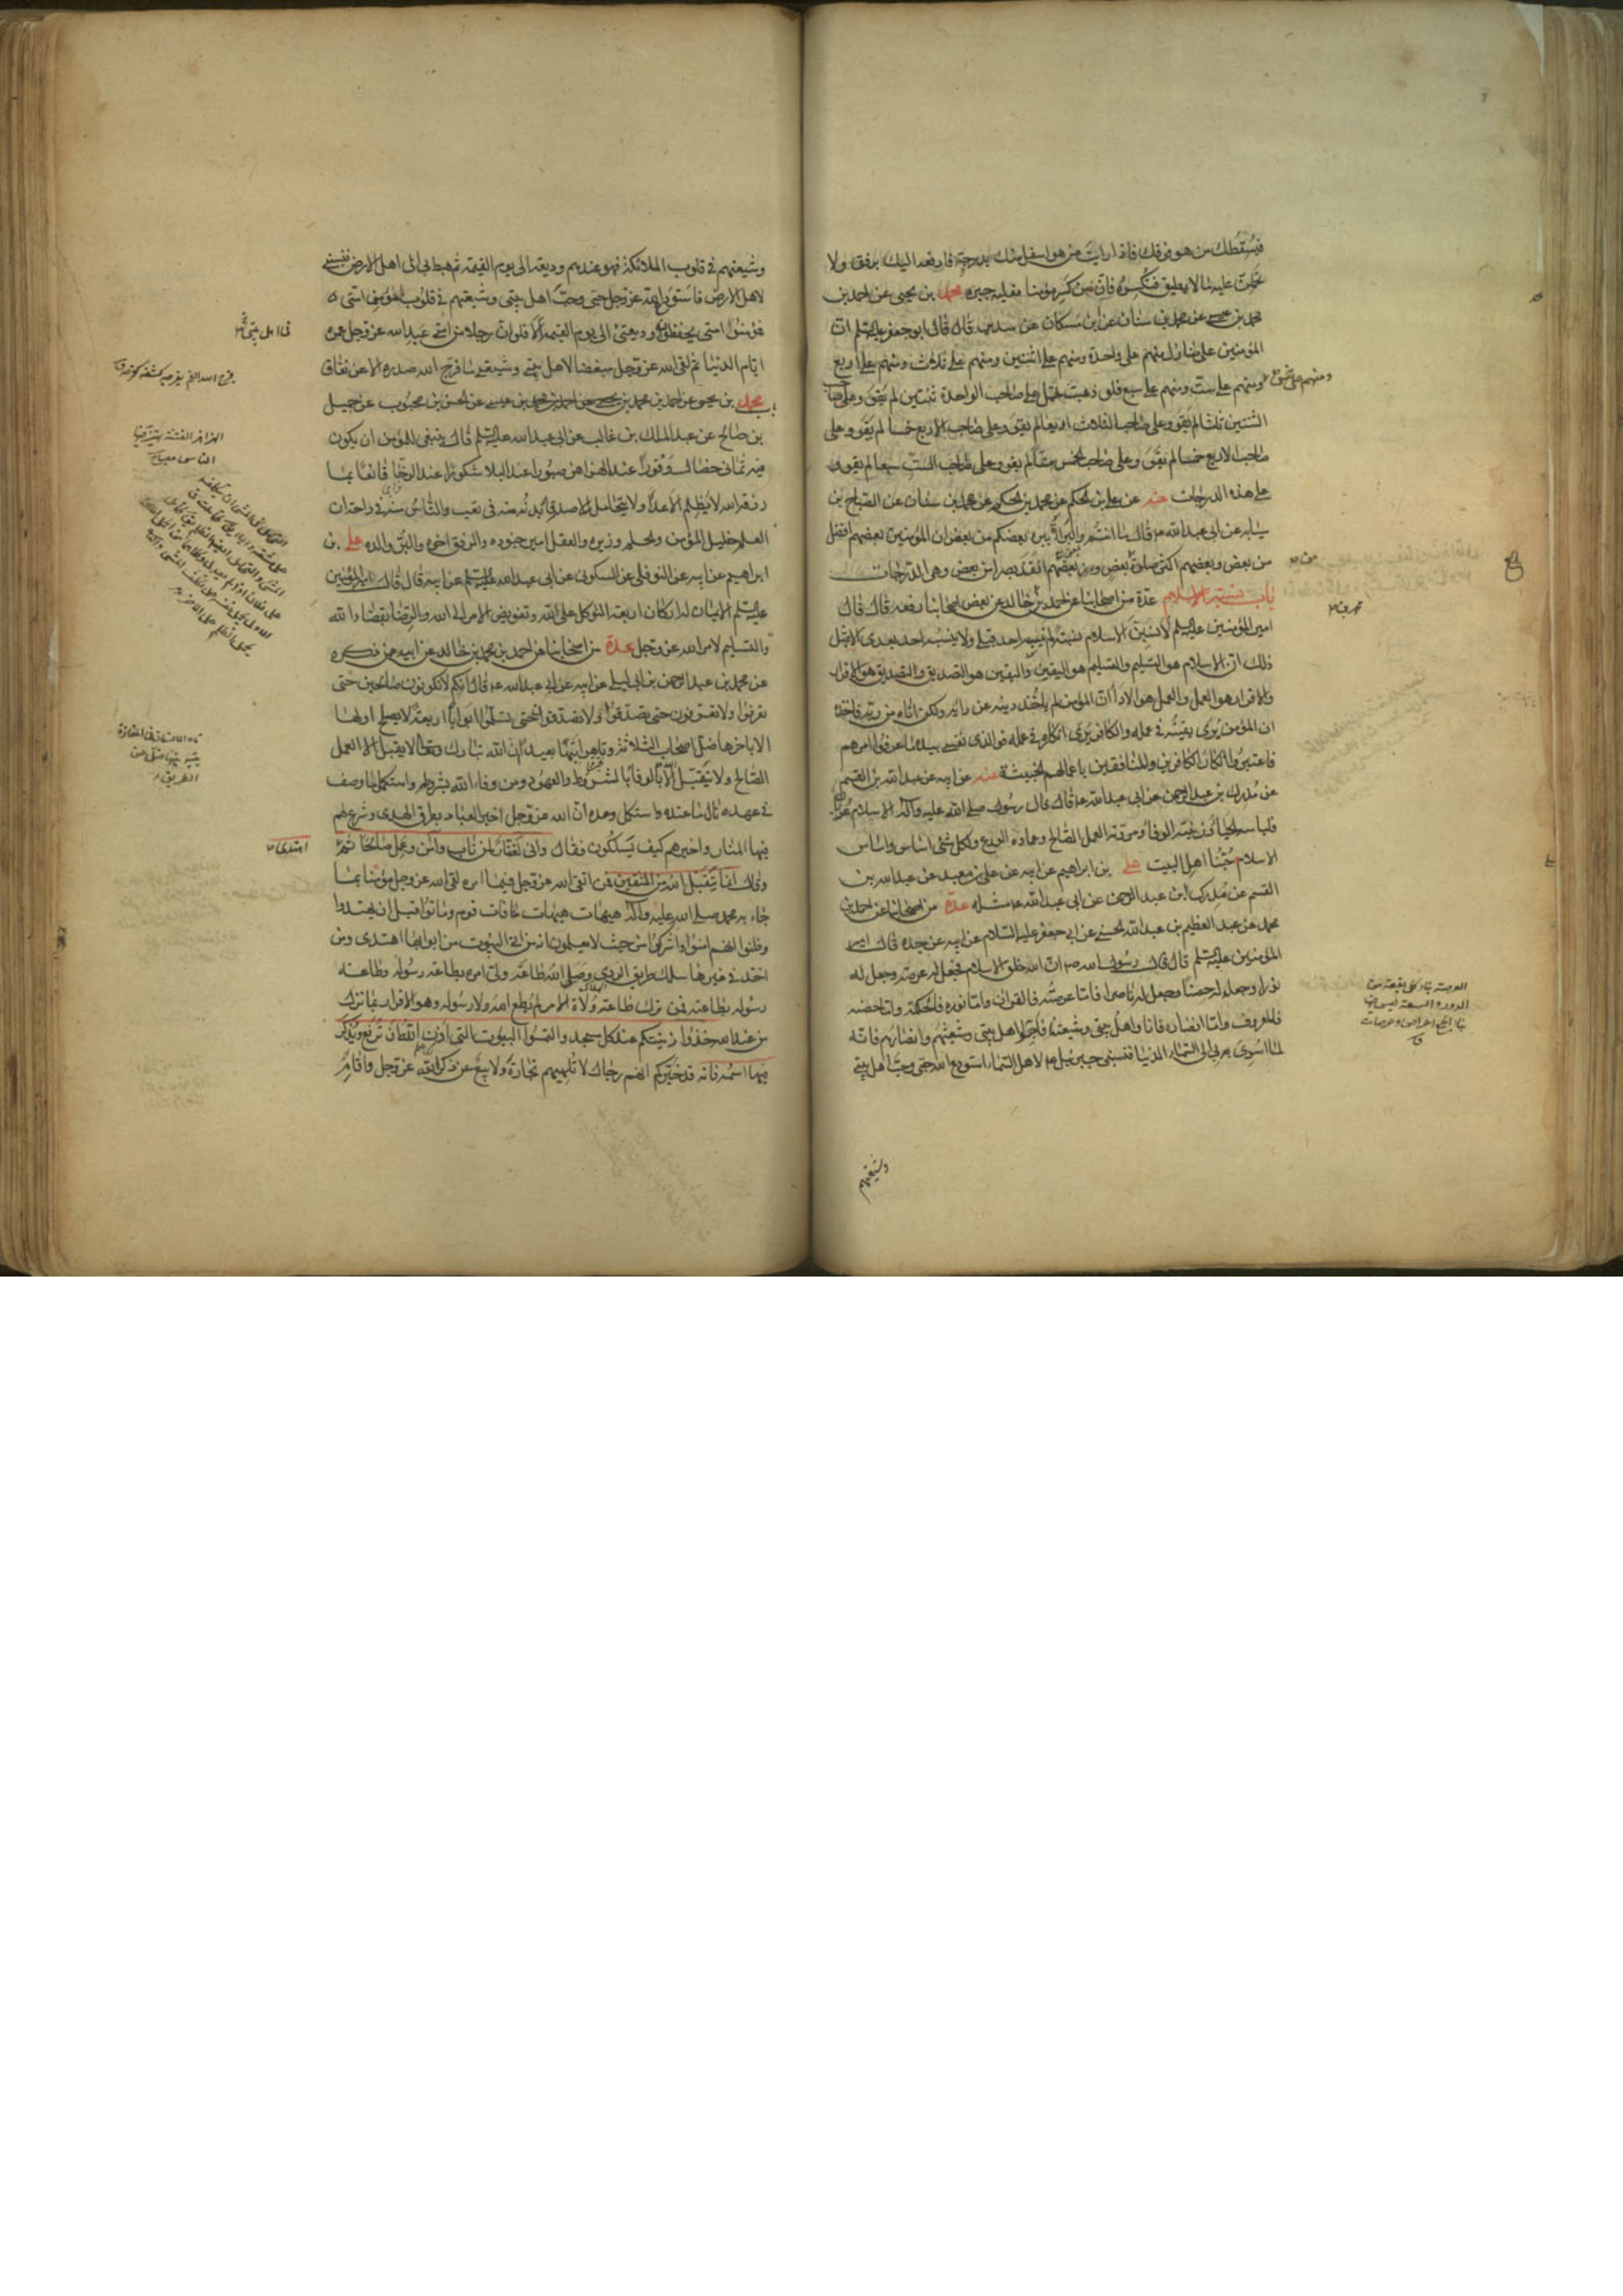 فيسقطك من هو فوقك فاذا رايت من هو اسفل منك بدرجة فارفعه اليك برفق ولا
تحملن عليه ما لا يطيق فتكسره فان من كسر مؤمنا فعليه جبره محمد بن يحيى عن احمد بن
محمد بن عيسى عن محمد بن سنان عن ابن مسكان عن سدير قال قال ابو جعفر عليه السلم ان
المؤمنين على منازل منهم على واحدة ومنهم على اثنتين ومنهم على ثلاث ومنهم على اربع
ومنهم على خمس
ومنهم على ست ومنهم على سبع فلو ذهبت تحمل على صاحب الواحدة ثنتين لم يقو وعلى صاحب
الثنتين ثلثا لم يقو وعلى صاحب الثلاث اربعا لم يقو وعلى صاحب الاربع خمسا لم يقو وعلى
صاحب الاربع خمسا لم يقو وعلى صاحب الخمس ستا لم يقو وعلى صاحب الست سبعا لم يقو و
على هذه الدرجات عنه عن علي بن الحكم عن محمد بن سنان عن الصباح بن
سيابه عن ابي عبد الله ع قال ما انتم والبراة يبرء بعضكم من بعض ان المؤمنين بعضهم افضل
من بعض وبعضهم اكثر صلوة من بعض وبعضهم انفذ بصرا من بعض وهي الدرجات
باب نسبة الاسلام عدة من اصحابنا عن احمد بن خالد عن بعض اصحابنا رفعه قال قال
امير المؤمنين عليه السلم لانسبن الاسلام نسبة لم ينسبه احد قبلي ولا ينسبه احد بعدي الا بمثل
ذلك ان الاسلام هو التسليم والتسليم هو اليقين واليقين هو التصديق والتصديق هو الاقرار
والاقرار هو العمل والعمل هو الاداء ان المؤمن لم ياخذ دينه عن رايه ولكن اتاه من ربه فاخذه
ان المؤمن يرى يقينه في عمله والكافر يرى انكاره في عمله فوالذي نفسي بيده ما عرفوا امرهم
فاعتبروا انكار الكافرين والمنافقين باعمالهم الخبيثة عنه عن ابيه عن عبد الله بن القسم
عن مدرك بن عبد الرحمن عن ابي عبد الله ع قال قال رسول الله صلى الله عليه وآله الاسلام عريان
فلباسه الحياء وزينته الوفاء ومروته العمل الصالح وعماده الورع ولكل شئ اساس واساس
الاسلام حبنا اهل البيت علي بن ابراهيم عن ابيه عن علي بن معبد عن عبد الله بن
القسم عن مدرك بن عبد الرحمن عن ابي عبد الله ع مثله عدة من اصحابنا عن احمد بن
محمد عن عبد العظيم بن عبد الله الحسني عن ابي جعفر عليه السلام عن ابيه عن جده قال امير
المؤمنين عليه السلم قال قال رسول الله ص ان الله خلق الاسلام فجعل له عرصة وجعل له
نورا وجعل له حصنا وجعل له ناصرا فاما عرصته فالقران واما نوره فالحكمة واما حصنه
فالمعروف واما انصاره فانا واهل بيتي وشيعتنا فاحبوا اهل بيتي وشيعتهم وانصارهم فانه
لما اسري بي الى السماء الدنيا فنسبني جبرئيل ع لاهل السماء استودع الله حبي وحب اهل بيتي
وشيعتهم
وشيعتهم في قلوب الملائكة فهو عندهم وديعة الى يوم القيمة ثم هبط بي الى اهل الارض فنسبني
لاهل الارض فاستودع الله عز وجل حبي وحب اهل بيتي وشيعتهم في قلوب مؤمني امتي
فمؤمنوا امتي يحفظون وديعتي الى يوم القيمة الا فلو ان رجلا من امتي عبد الله عز وجل عمره
في اهل بيتي
ايام الدنيا ثم لقى الله عز وجل مبغضا لاهل بيتي وشيعتي ما فرج الله صدره الا عن نفاق
محمد بن يحيى عن احمد بن محمد بن عيسى عن الحسن بن محبوب عن جميل
بن صالح عن عبد الملك بن غالب عن ابي عبد الله عليه السلم قال ينبغي للمؤمن ان يكون
فيه ثماني خصال وقورا عند الهزاهز صبورا عند البلاء شكورا عند الرخاء قانعا بما
رزقه الله لا يظلم الاعداء ولا يتحامل للاصدقاء بدنه منه في تعب والناس منه في راحة ان
العلم خليل المؤمن والحلم وزيره والعقل امير جنوده والرفق اخوه والبر والده علي بن
ابراهيم عن ابيه عن النوفلي عن السكوني عن ابي عبد الله عليه السلم عن ابيه قال قال امير المؤمنين
عليه السلم الايمان له اركان اربعة التوكل على الله وتفويض الامر الى الله والرضا بقضاء الله
والتسليم لامر الله عز وجل عدة من اصحابنا عن احمد بن محمد بن خالد عن ابيه عن ذكره
عن محمد بن عبد الرحمن بن ابي ليلى عن ابيه عن ابي عبد الله ع قال انكم لا تكونون صالحين حتى
تعرفوا ولا تعرفون حتى تصدقوا ولا تصدقوا حتى تسلموا ابوابا اربعة لا يصلح اولها
الا باخرها ضل اصحاب الثلاثة وتاهوا تيها بعيدا ان الله تبارك وتعالى لا يقبل الا العمل
الصالح ولا يتقبل الا بالوفاء بالشروط والعهود ومن وفا الله بشروطه واستكمل ما وصف
في عهده نال ما عنده واستكمل وعده ان الله عز وجل اخبر العباد بطرق الهدى وشرع لهم
فيها المنار واخبرهم كيف يسلكون فقال واني لغفار لمن تاب وآمن وعمل صالحا ثم
اهتدى
وقال انما يتقبل الله من المتقين فمن اتقى الله عز وجل فيما امره لقى الله عز وجل مؤمنا بما
جاء به محمد صلى الله عليه وآله هيهات هيهات فات قوم وماتوا قبل ان يهتدوا
وظنوا انهم امنوا واشركوا من حيث لا يعلمون انه من اتى البيوت من ابوابها اهتدى ومن
اخذ في غيرها سلك طريق الردى وصل الله طاعة ولي امره بطاعة رسوله وطاعة
رسوله بطاعته فمن ترك طاعة ولاة الامر لم يطع الله ولا رسوله وهو الاقرار بما نزل
من عند الله خذوا زينتكم عند كل مسجد والتمسوا البيوت التي اذن الله ان ترفع ويذكر
فيها اسمه فانه قد خبركم انهم رجال لا تلهيهم تجارة ولا بيع عن ذكر الله عز وجل واقام